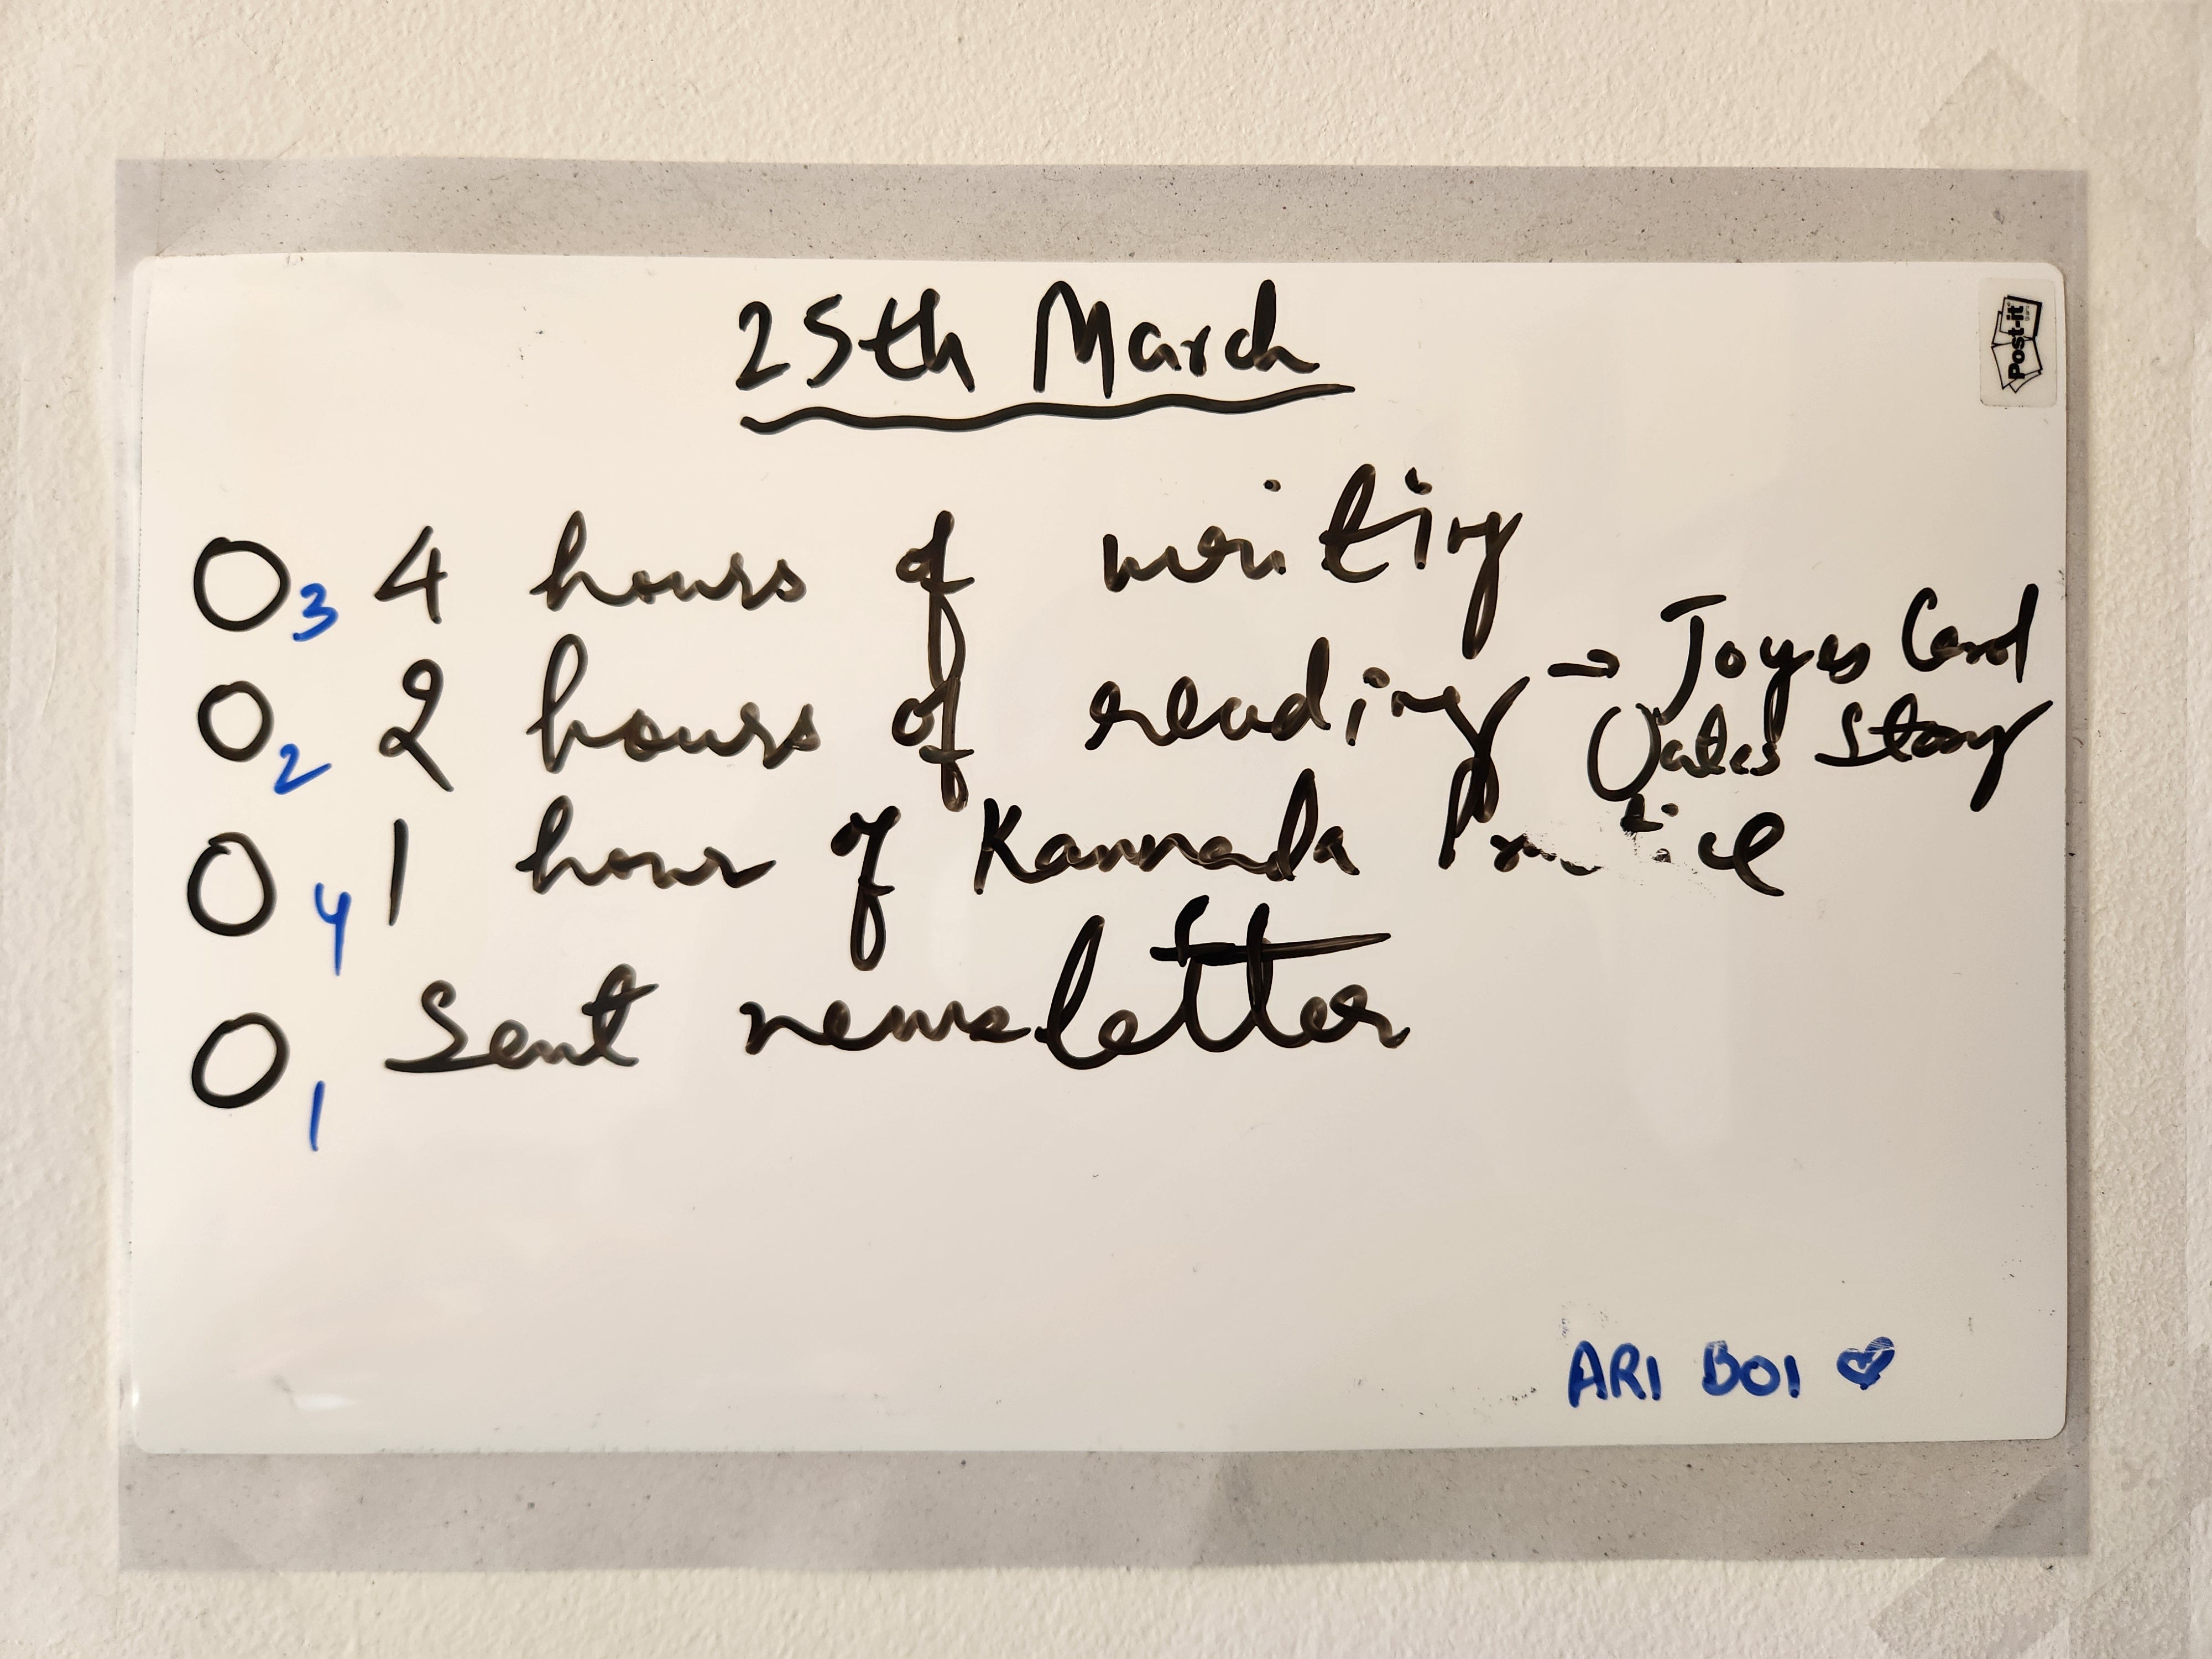 25th March
Post-it
O3 4 hours of writing
O2 2 hours of reading → Joyes Carol
Oates Story
O4 1 hour of Kannada Practice
O1 Sent newsletter
ARI BOI